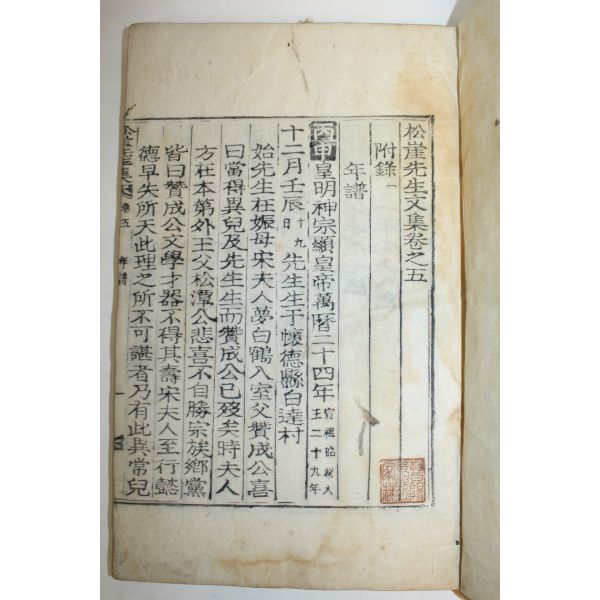 松崖先生文集卷之五
附錄一
年譜
丙申皇明神宗顯皇帝萬曆二十四年宣祖昭敬大王二十九年
十二月壬辰十九日先生生于懷德縣白達村
始先生在娠母宋夫人夢白鶴入室父贊成公喜
曰當得異兒及先生生而贊成公已歿矣時夫人
方在本第外王父松潭公悲喜不自勝宗族鄉黨
皆曰贊成公文學才器不得其壽宋夫人至行懿
德早失所天此理之所不可諶者乃有此異常兒
卷五 年譜 一